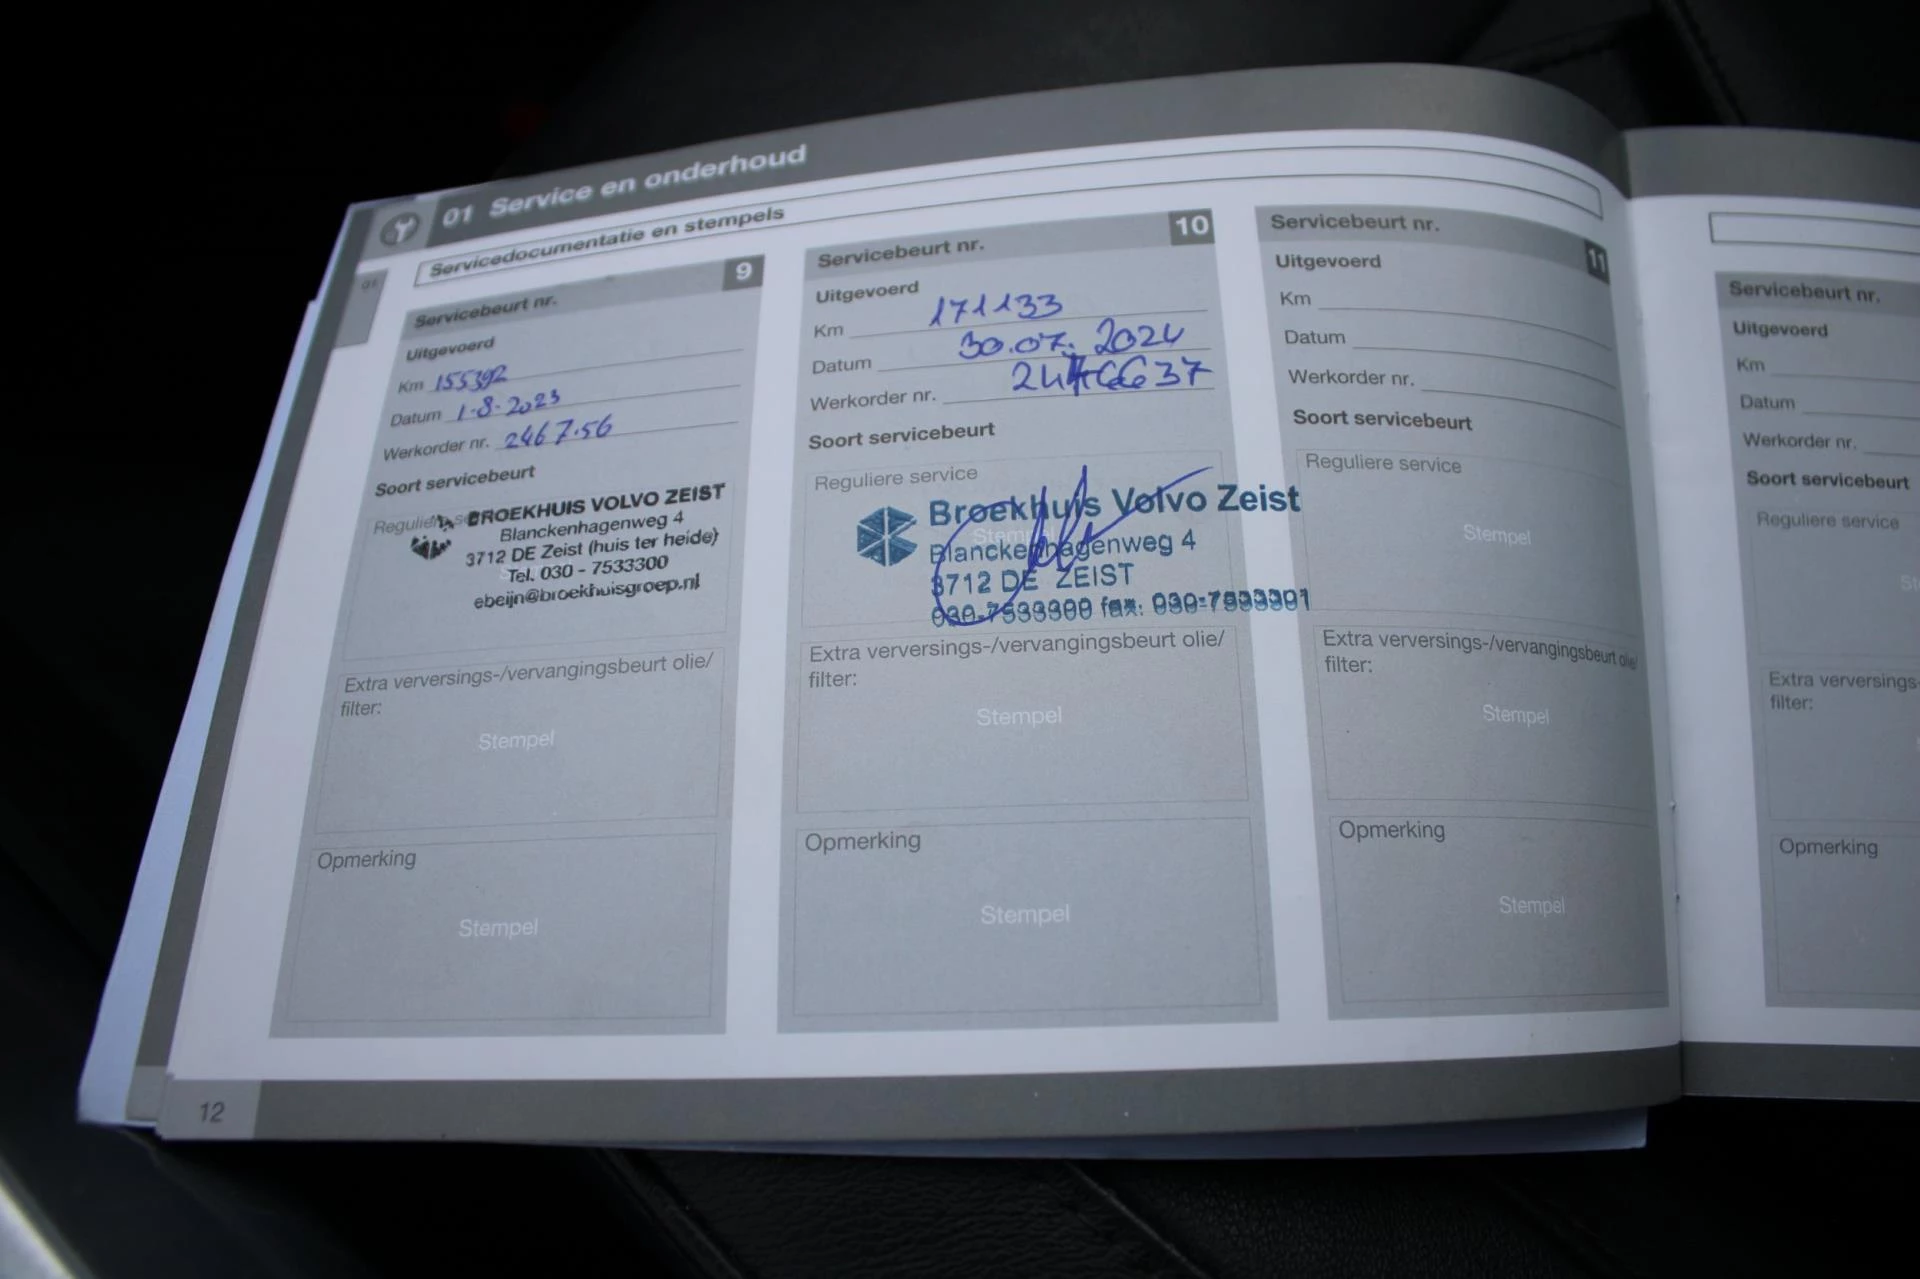 01 Service en onderhoud
Servicedocumentatie en stempels
01
Servicebeurt nr. 9
Uitgevoerd
Km 155392
Datum 1-8-2023
Werkorder nr. 2467.56
Soort servicebeurt
BROEKHUIS VOLVO ZEIST
Blanckenhagenweg 4
3712 DE Zeist (huis ter heide)
Tel. 030 - 7533300
ebeijn@broekhuisgroep.nl
Extra verversings-/vervangingsbeurt olie/
filter:
Stempel
Opmerking
Stempel
Servicebeurt nr. 10
Uitgevoerd
Km 171133
Datum 30.07.2024
Werkorder nr.
Soort servicebeurt
Reguliere service
Broekhuis Volvo Zeist
Stempel
Blanckenhagenweg 4
3712 DE ZEIST
030-7533300 fax: 030-7533301
Extra verversings-/vervangingsbeurt olie/
filter:
Stempel
Opmerking
Stempel
Servicebeurt nr. 11
Uitgevoerd
Km
Datum
Werkorder nr.
Soort servicebeurt
Reguliere service
Stempel
Extra verversings-/vervangingsbeurt olie/
filter:
Stempel
Opmerking
Stempel
12
Servicebeurt nr.
Uitgevoerd
Km
Datum
Werkorder nr.
Soort servicebeurt
Reguliere service
Extra verversings-
filter:
Opmerking